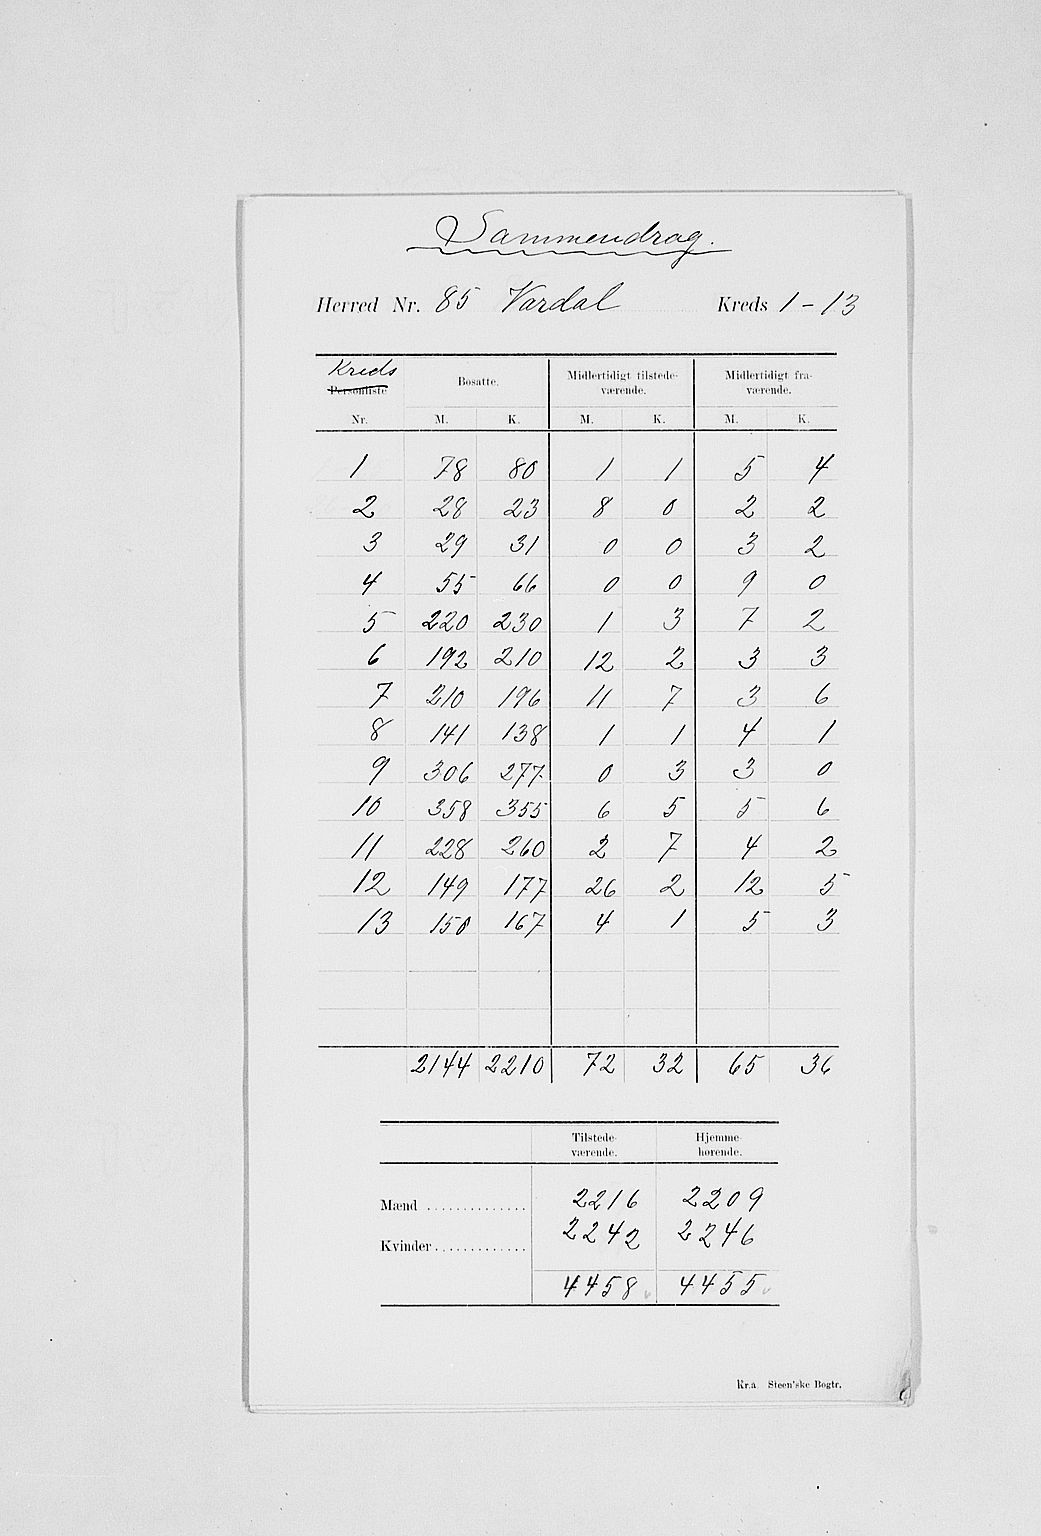 Sammendrag.
Herred Nr. 85 Vardal Kreds 1 - 13
Kreds
Personliste Bosatte. Midlertidigt tilstede- Midlertidigt fra-
værende. værende.
Nr. M. K. M. K. M. K.
1 78 80 1 1 5 4
2 28 23 8 0 2 2
3 29 31 0 0 3 2
4 55 66 0 0 9 0
5 220 230 1 3 7 2
6 192 210 12 2 3 3
7 210 196 11 7 3 6
8 141 138 1 1 4 1
9 306 277 0 3 3 0
10 358 355 6 5 5 6
11 228 260 2 7 4 2
12 149 177 26 2 12 5
13 150 167 4 1 5 3
2144 2210 72 32 65 36
Tilstede- Hjemme-
værende. hørende.
Mænd .............. 2216 2209
Kvinder............. 2242 2246
4458 4455
Kr.a Steen'ske Bogtr.